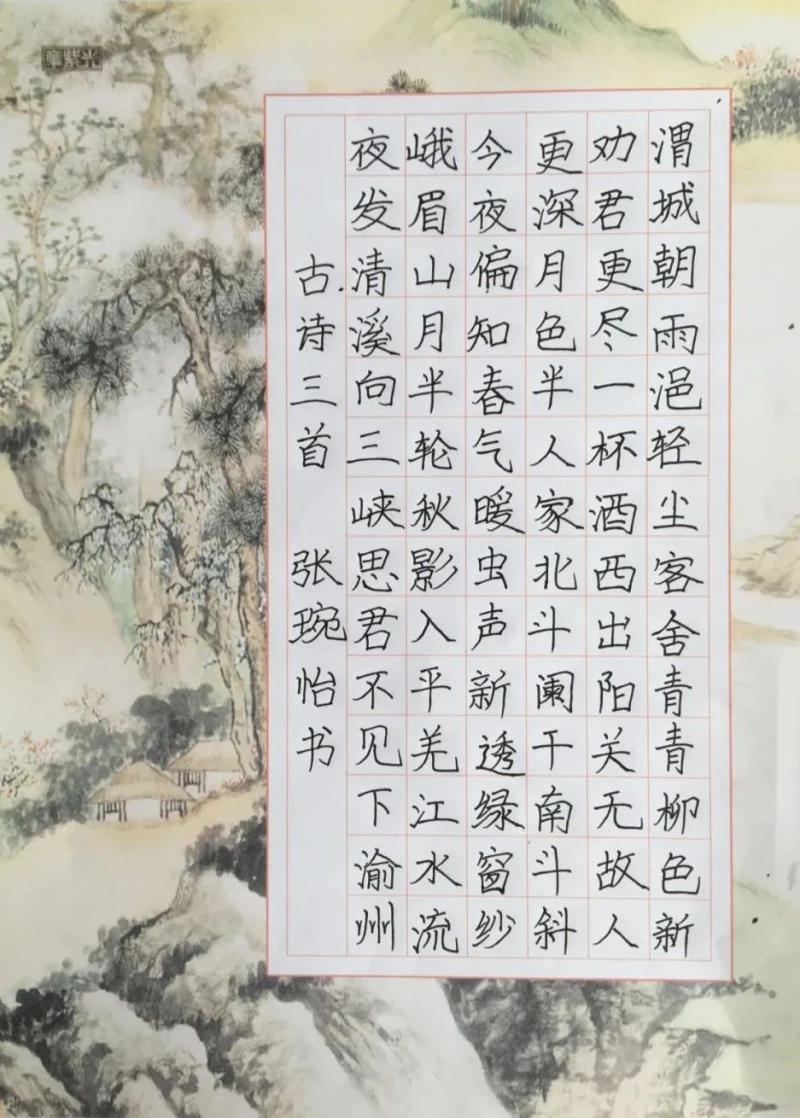 渭城朝雨浥轻尘客舍青青柳色新
劝君更尽一杯酒西出阳关无故人
更深月色半人家北斗阑干南斗斜
今夜偏知春气暖虫声新透绿窗纱
峨眉山月半轮秋影入平羌江水流
夜发清溪向三峡思君不见下渝州
古诗三首 张琬怡书
章紫光